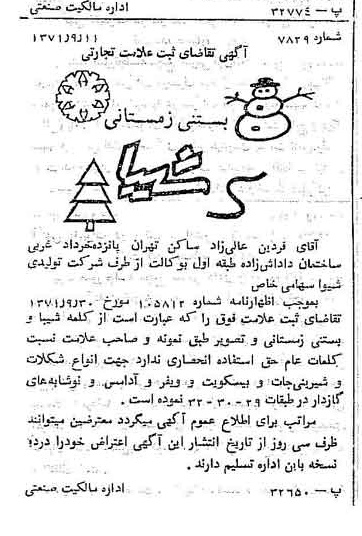 پ — ۳۲۷۷٤ اداره مالکیت صنعتی
شماره ۷۸۲۹ ۱۳۷۱ر۹ر۱۱
آگهی تقاضای ثبت علامت تجارتی
بستنی زمستانی
شیبا
آقای فردین عالی‌زاد ساکن تهران پانزده‌خرداد غربی
ساختمان داداش‌زاده طبقه اول بوکالت از طرف شرکت تولیدی
شیوا سهامی خاص
بموجب اظهارنامه شماره ۱۰۵۸۱۲ مورخ ۱۳۷۱ر۹ر۳۰
تقاضای ثبت علامت فوق را که عبارت است از کلمه شیبا و
بستنی زمستانی و تصویر طبق نمونه و صاحب علامت نسبت
کلمات عام حق استفاده انحصاری ندارد جهت انواع شکلات
و شیرینی‌جات و بیسکویت و ویفر و آدامس و نوشابه‌های
گازدار در طبقات ۲۹ - ۳۰ - ۳۲ نموده است .
مراتب برای اطلاع عموم آگهی میگردد معترضین میتوانند
ظرف سی روز از تاریخ انتشار این آگهی اعتراض خودرا دردو
نسخه باین اداره تسلیم دارند .
پ — ۳۲٦۵۰ اداره مالکیت صنعتی